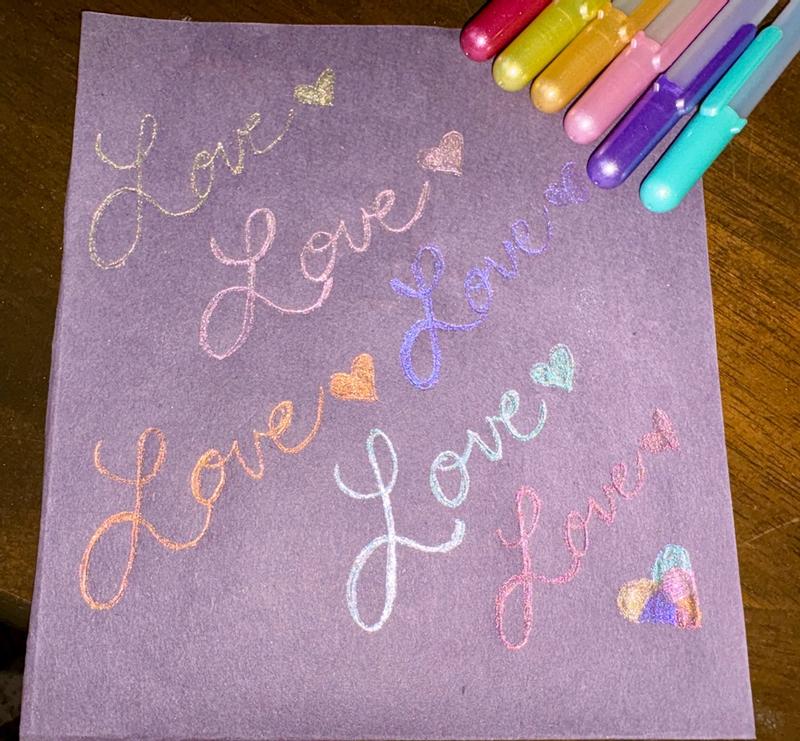 Love
Love
Love
Love
Love
Love